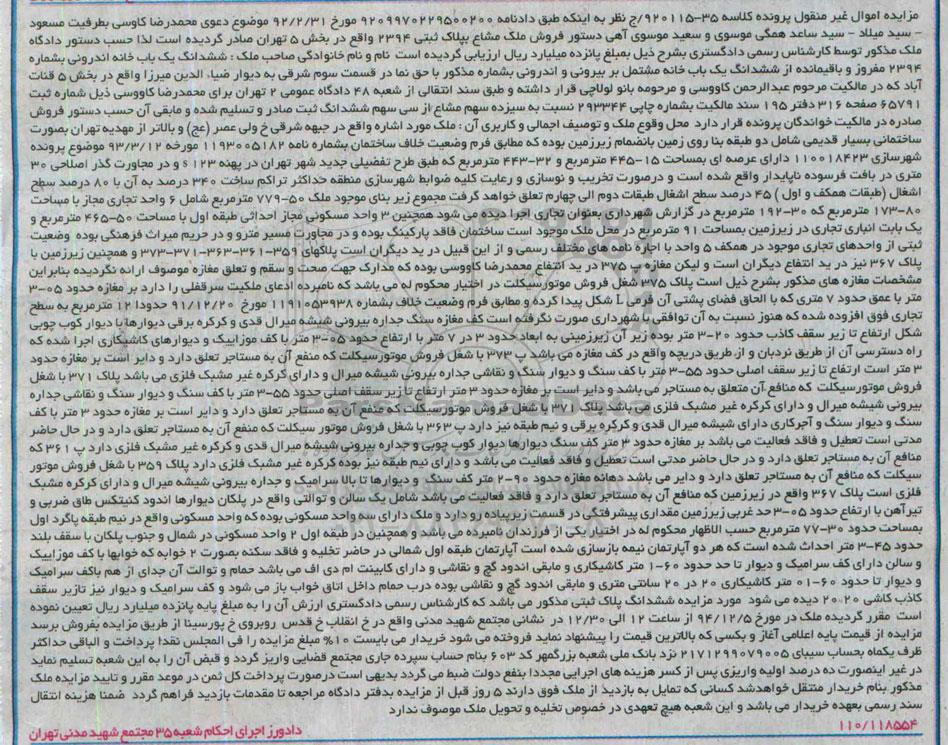 مزایده اموال غیر منقول پرونده کلاسه ۳۵-۹۲۰۱۱۵/ج نظر به اینکه طبق دادنامه ۹۲۰۹۹۷۰۲۲۹۵۰۰۲۰۰ مورخ ۹۲/۲/۳۱ موضوع دعوی محمدرضا کاوسی بطرفیت مسعود
- سید میلاد - سید ساعد همگی موسوی و سعید موسوی آهی دستور فروش ملک مشاع بپلاک ثبتی ۲۳۹۴ واقع در بخش ۵ تهران صادر گردیده است لذا حسب دستور دادگاه
ملک مذکور توسط کارشناس رسمی دادگستری بشرح ذیل بمبلغ پانزده میلیارد ریال ارزیابی گردیده است نام و نام خانوادگی صاحب ملک : ششدانگ یک باب خانه اندرونی بشماره
۲۳۹۴ مفروز و باقیمانده از ششدانگ یک باب خانه مشتمل بر بیرونی و اندرونی بشماره مذکور با حق نما در قسمت سوم شرقی به دیوار ضیاء الدین میرزا واقع در بخش ۵ قنات
آباد که در مالکیت مرحوم عبدالرحمن کاووسی و مرحومه بانو لولاچی قرار داشته و طبق سند انتقالی از شعبه ۴۸ دادگاه عمومی ۲ تهران برای محمدرضا کاووسی ذیل شماره ثبت
۶۵۷۹۱ صفحه ۳۱۶ دفتر ۱۹۵ سند مالکیت بشماره چاپی ۲۹۳۳۴۴ نسبت به سیزده سهم مشاع از سی سهم ششدانگ ثبت صادر و تسلیم شده و مابقی آن حسب دستور فروش
صادره در مالکیت خواندگان پرونده قرار دارد محل وقوع ملک و توصیف اجمالی و کاربری آن : ملک مورد اشاره واقع در جبهه شرقی خ ولی عصر (عج) و بالاتر از مهدیه تهران بصورت
ساختمانی بسیار قدیمی شامل دو طبقه بنا روی زمین بانضمام زیرزمین بوده که مطابق فرم وضعیت خلاف ساختمان بشماره نامه ۱۱۹۳۰۰۵۱۸۲ مورخه ۹۳/۳/۱۲ موضوع پرونده
شهرسازی ۱۱۰۰۱۸۴۲۳ دارای عرصه ای بمساحت ۱۵-۴۴۵ مترمربع و ۳۲-۴۴۳ مترمربع که طبق طرح تفضیلی جدید شهر تهران در پهنه s ۱۲۳ و در مجاورت گذر اصلاحی ۳۰
متری در بافت فرسوده ناپایدار واقع شده است و درصورت تخریب و نوسازی و رعایت کلیه ضوابط شهرسازی منطقه حداکثر تراکم ساخت ۳۴۰ درصد به آن با ۸۰ درصد سطح
اشغال (طبقات همکف و اول ) ۴۵ درصد سطح اشغال طبقات دوم الی چهارم تعلق خواهد گرفت مجموع زیر بنای موجود ملک ۵۰-۷۷۹ مترمربع شامل ۶ واحد تجاری مجاز با مساحت
۸۰-۱۷۳ مترمربع که ۳۰-۱۹۲ مترمربع در گزارش شهرداری بعنوان تجاری اجرا دیده می شود همچنین ۳ واحد مسکونی مجاز احداثی طبقه اول با مساحت ۵۰-۴۶۵ مترمربع و
یک بابت انباری تجاری در زیرزمین بمساحت ۹۱ مترمربع در محل ملک موجود است ساختمان فاقد پارکینگ بوده و در مجاورت مسیر مترو و در حریم میراث فرهنگی بوده وضعیت
ثبتی از واحدهای تجاری موجود در همکف ۵ واحد با اجاره نامه های مختلف رسمی و از این قبیل در ید دیگران است پلاکهای ۳۵۹-۳۶۱-۳۶۳-۳۷۱-۳۷۳ و همچنین زیرزمین با
پلاک ۳۶۷ نیز در ید انتفاع دیگران است و لیکن مغازه پ ۳۷۵ در ید انتفاع محمدرضا کاووسی بوده که مدارک جهت صحت و سقم و تعلق مغازه موصوف ارائه نگردیده بنابراین
مشخصات مغازه های مذکور بشرح ذیل است پلاک ۳۷۵ شغل فروش موتورسیکلت در اختیار محکوم له می باشد که نامبرده ادعای ملکیت سرقفلی را دارد بر مغازه حدود ۰۵-۳
متر با عمق حدود ۷ متری که با الحاق فضای پشتی آن فرمی L شکل پیدا کرده و مطابق فرم وضعیت خلاف بشماره ۱۱۹۱۰۵۳۹۳۸ مورخ ۹۱/۱۲/۲۰ حدودا ۱۲ مترمربع به سطح
تجاری فوق افزوده شده که هنوز نسبت به آن توافقی با شهرداری صورت نگرفته است کف مغازه سنگ جداره بیرونی شیشه میرال قدی و کرکره برقی دیوارها با دیوار کوب چوبی
شکل ارتفاع تا زیر سقف کاذب حدود ۲۰-۳ متر بوده زیر آن زیرزمینی به ابعاد حدود ۳ در ۷ متر با ارتفاع حدود ۰۵-۳ متر با کف موزاییک و دیوارهای کاشیکاری اجرا شده که
راه دسترسی آن از طریق نردبان و از طریق دریچه واقع در کف مغازه می باشد پ ۳۷۳ با شغل فروش موتورسیکلت که منفع آن به مستاجر تعلق دارد و دایر است بر مغازه حدود
۳ متر است ارتفاع تا زیر سقف اصلی حدود ۵۵-۳ متر با کف سنگ و دیوار سنگ و نقاشی جداره بیرونی شیشه میرال و دارای کرکره غیر مشبک فلزی می باشد پلاک ۳۷۱ با شغل
فروش موتورسیکلت که منافع آن متعلق به مستاجر می باشد و دایر است بر مغازه حدود ۳ متر ارتفاع تا زیر سقف اصلی حدود ۵۵-۳ متر با کف سنگ و دیوار سنگ و نقاشی جداره
بیرونی شیشه میرال و دارای کرکره غیر مشبک فلزی می باشد پلاک ۳۷۱ با شغل فروش موتورسیکلت که منفع آن به مستاجر تعلق دارد و دایر است بر مغازه حدود ۳ متر با کف
سنگ و دیوار سنگ و آجرکاری دارای شیشه میرال قدی و کرکره برقی و نیم طبقه نیز دارد پ ۳۶۳ با شغل فروش موتور سیکلت که منفع آن به مستاجر تعلق دارد و در حال حاضر
مدتی است تعطیل و فاقد فعالیت می باشد بر مغازه حدود ۳ متر کف سنگ دیوارها دیوار کوب چوبی و جداره بیرونی شیشه میرال قدی و کرکره غیر مشبک فلزی دارد پ ۳۶۱ که
منافع آن به مستاجر تعلق دارد و در حال حاضر مدتی است تعطیل و فاقد فعالیت می باشد و دارای نیم طبقه نیز بوده کرکره غیر مشبک فلزی دارد پلاک ۳۵۹ با شغل فروش موتور
سیکلت که منافع آن به مستاجر تعلق دارد و دایر می باشد دهانه مغازه حدود ۹۰-۲ متر کف سنگ و دیوارها تا بالا سرامیک و جداره بیرونی شیشه میرال و دارای کرکره مشبک
فلزی است پلاک ۳۶۷ واقع در زیرزمین که منافع آن به مستاجر تعلق دارد و فاقد فعالیت می باشد شامل یک سالن و توالتی واقع در پلکان دیوارها اندود کنیتکس طاق ضربی و
تیرآهن با ارتفاع حدود ۰۵-۳ حد غربی زیرزمین مقداری پیشرفتگی در قسمت زیرپیاده رو دارد و ملک دارای سه واحد مسکونی بوده که واحد مسکونی واقع در نیم طبقه پاگرد اول
بمساحت حدود ۳۰-۷۷ مترمربع حسب الاظهار محکوم له در اختیار یکی از فرزندان نامبرده می باشد و همچنین در طبقه اول ۲ واحد مسکونی در شمال و جنوب پلکان با سقف بلند
حدود ۴۵-۳ متر احداث شده است که هر دو آپارتمان نیمه بازسازی شده است آپارتمان طبقه اول شمالی در حاضر تخلیه و فاقد سکنه بصورت ۲ خوابه که خوابها با کف موزاییک
و سالن دارای کف سرامیک و دیوار تا حد حدود ۶۰-۱ متر کاشیکاری و مابقی اندود گچ و نقاشی و دارای کابینت ام دی اف می باشد حمام و توالت آن جدای از هم باکف سرامیک
و دیوار تا حدود ۶۰-۰۱ متر کاشیکاری ۲۰ در ۲۰ سانتی متری و مابقی اندود گچ و نقاشی بوده درب حمام داخل اتاق خواب باز می شود و کف سرامیک و دیوار نیز تازیر سقف
کاذب کاشی ۲۰.۲۰ دیده می شود مورد مزایده ششدانگ پلاک ثبتی مذکور می باشد که کارشناس رسمی دادگستری ارزش آن را به مبلغ پایه پانزده میلیارد ریال تعیین نموده
است مقرر گردیده ملک در مورخ ۹۴/۱۲/۵ از ساعت ۱۲ الی ۱۲/۳۰ در نشانی مجتمع شهید مدنی واقع در خ انقلاب خ قدس روبروی خ پورسینا از طریق مزایده بفروش برسد
مزایده از قیمت پایه اعلامی آغاز و بکسی که بالاترین قیمت را پیشنهاد نماید فروخته می شود خریدار می بایست ۱۰% مبلغ مزایده را فی المجلس نقدا پرداخت و الباقی حداکثر
ظرف یکماه بحساب سیبای ۲۱۷۱۲۹۹۰۷۹۰۰۵ نزد بانک ملی شعبه بزرگمهر کد ۶۰۳ بنام حساب سپرده جاری مجتمع قضایی واریز گردد و قبض آن را به این شعبه تسلیم نماید
در غیر اینصورت ده درصد اولیه واریزی پس از کسر هزینه های اجرایی مجددا بنفع دولت ضبط می گردد بدیهی است درصورت پرداخت کل ثمن در موعد مقرر و تایید مزایده ملک
مذکور بنام خریدار منتقل خواهدشد کسانی که تمایل به بازدید از ملک فوق دارند ۵ روز قبل از مزایده بدفتر دادگاه مراجعه تا مقدمات بازدید فراهم گردد ضمنا هزینه انتقال
سند رسمی بعهده خریدار می باشد و این شعبه هیچ تعهدی در خصوص تخلیه و تحویل ملک موصوف ندارد
۱۱۰/۱۱۸۵۵۴ دادورز اجرای احکام شعبه ۳۵ مجتمع شهید مدنی تهران